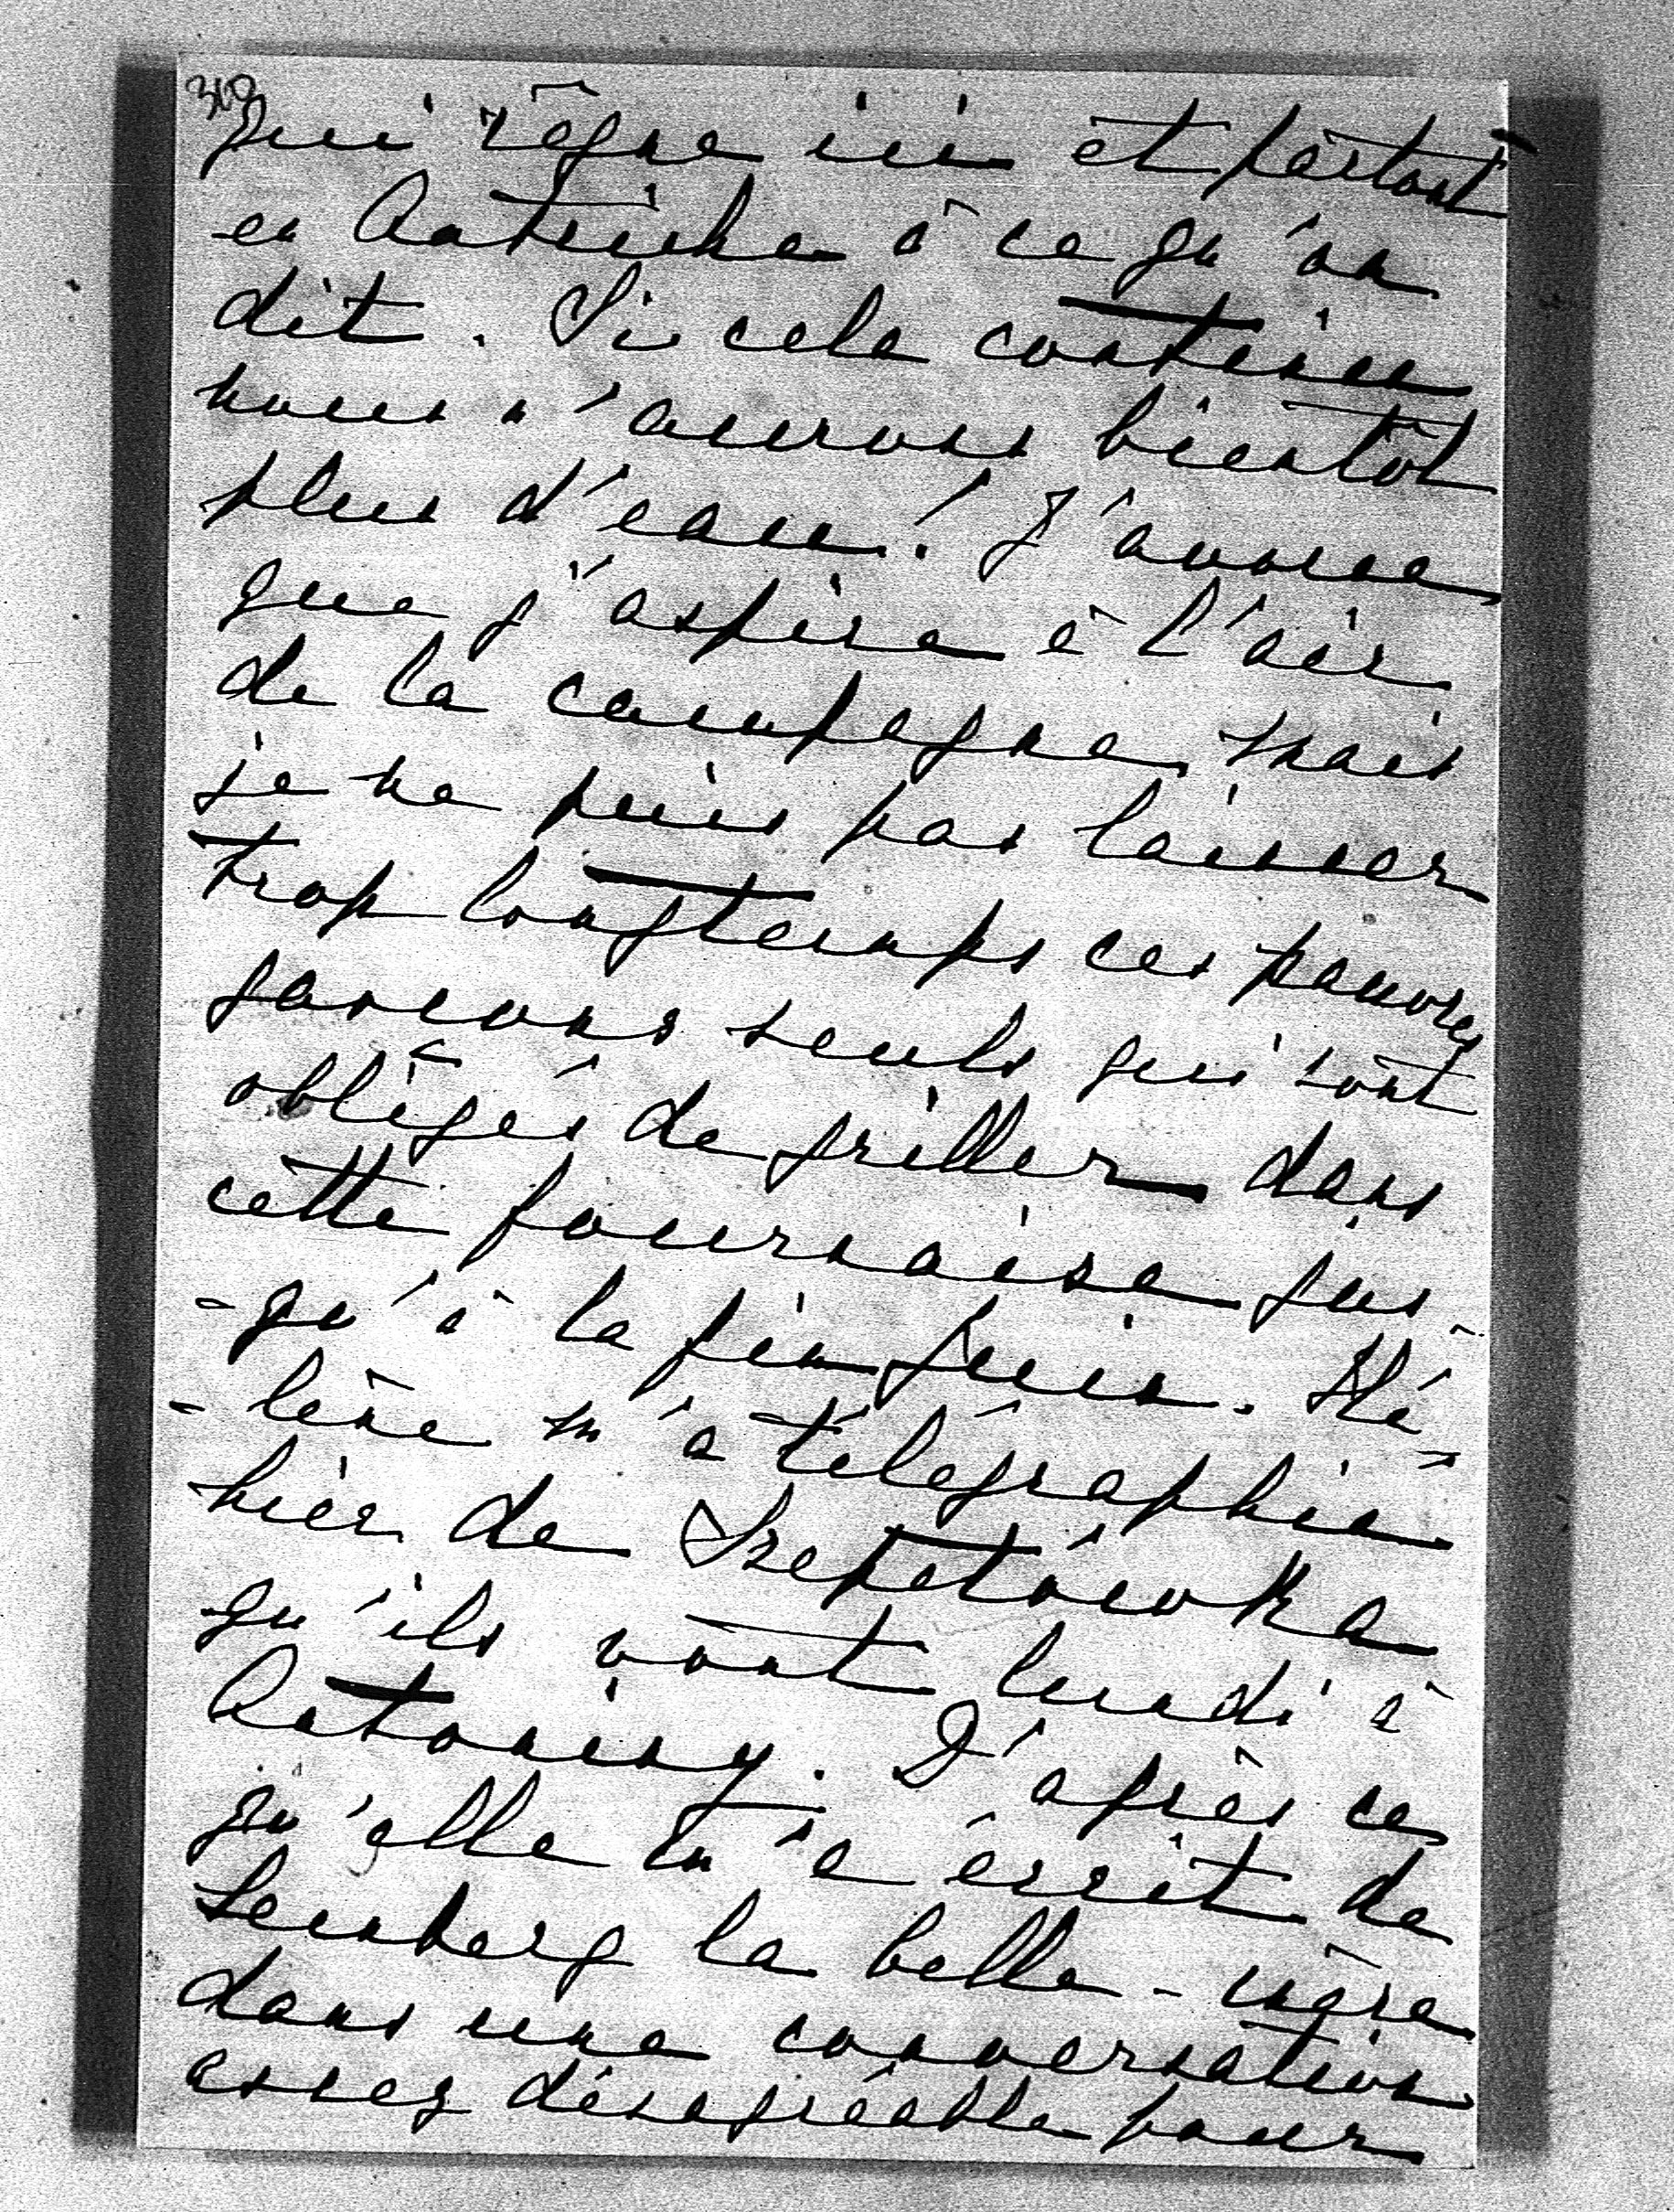 310
qui règne ici et partout
en Autriche à ce qu'on
dit. Si cela continue
nous n'aurons bientôt
plus d'eau! J'avoue
que j'aspire à l'air
de la campagne, mais
je ne puis pas laisser
trop longtemps ces pauvres
garçons seuls qui sont
obligés de griller dans
cette fournaise jus-
-qu'à la fin Juin. Hé-
-lène m'a télégraphié
hier de Szepetówka
qu'ils vont lundi à
Antoniny. D'après ce
qu'elle m'a écrit de
Lemberg la belle-mère
dans une conversation
assez désagréable pour